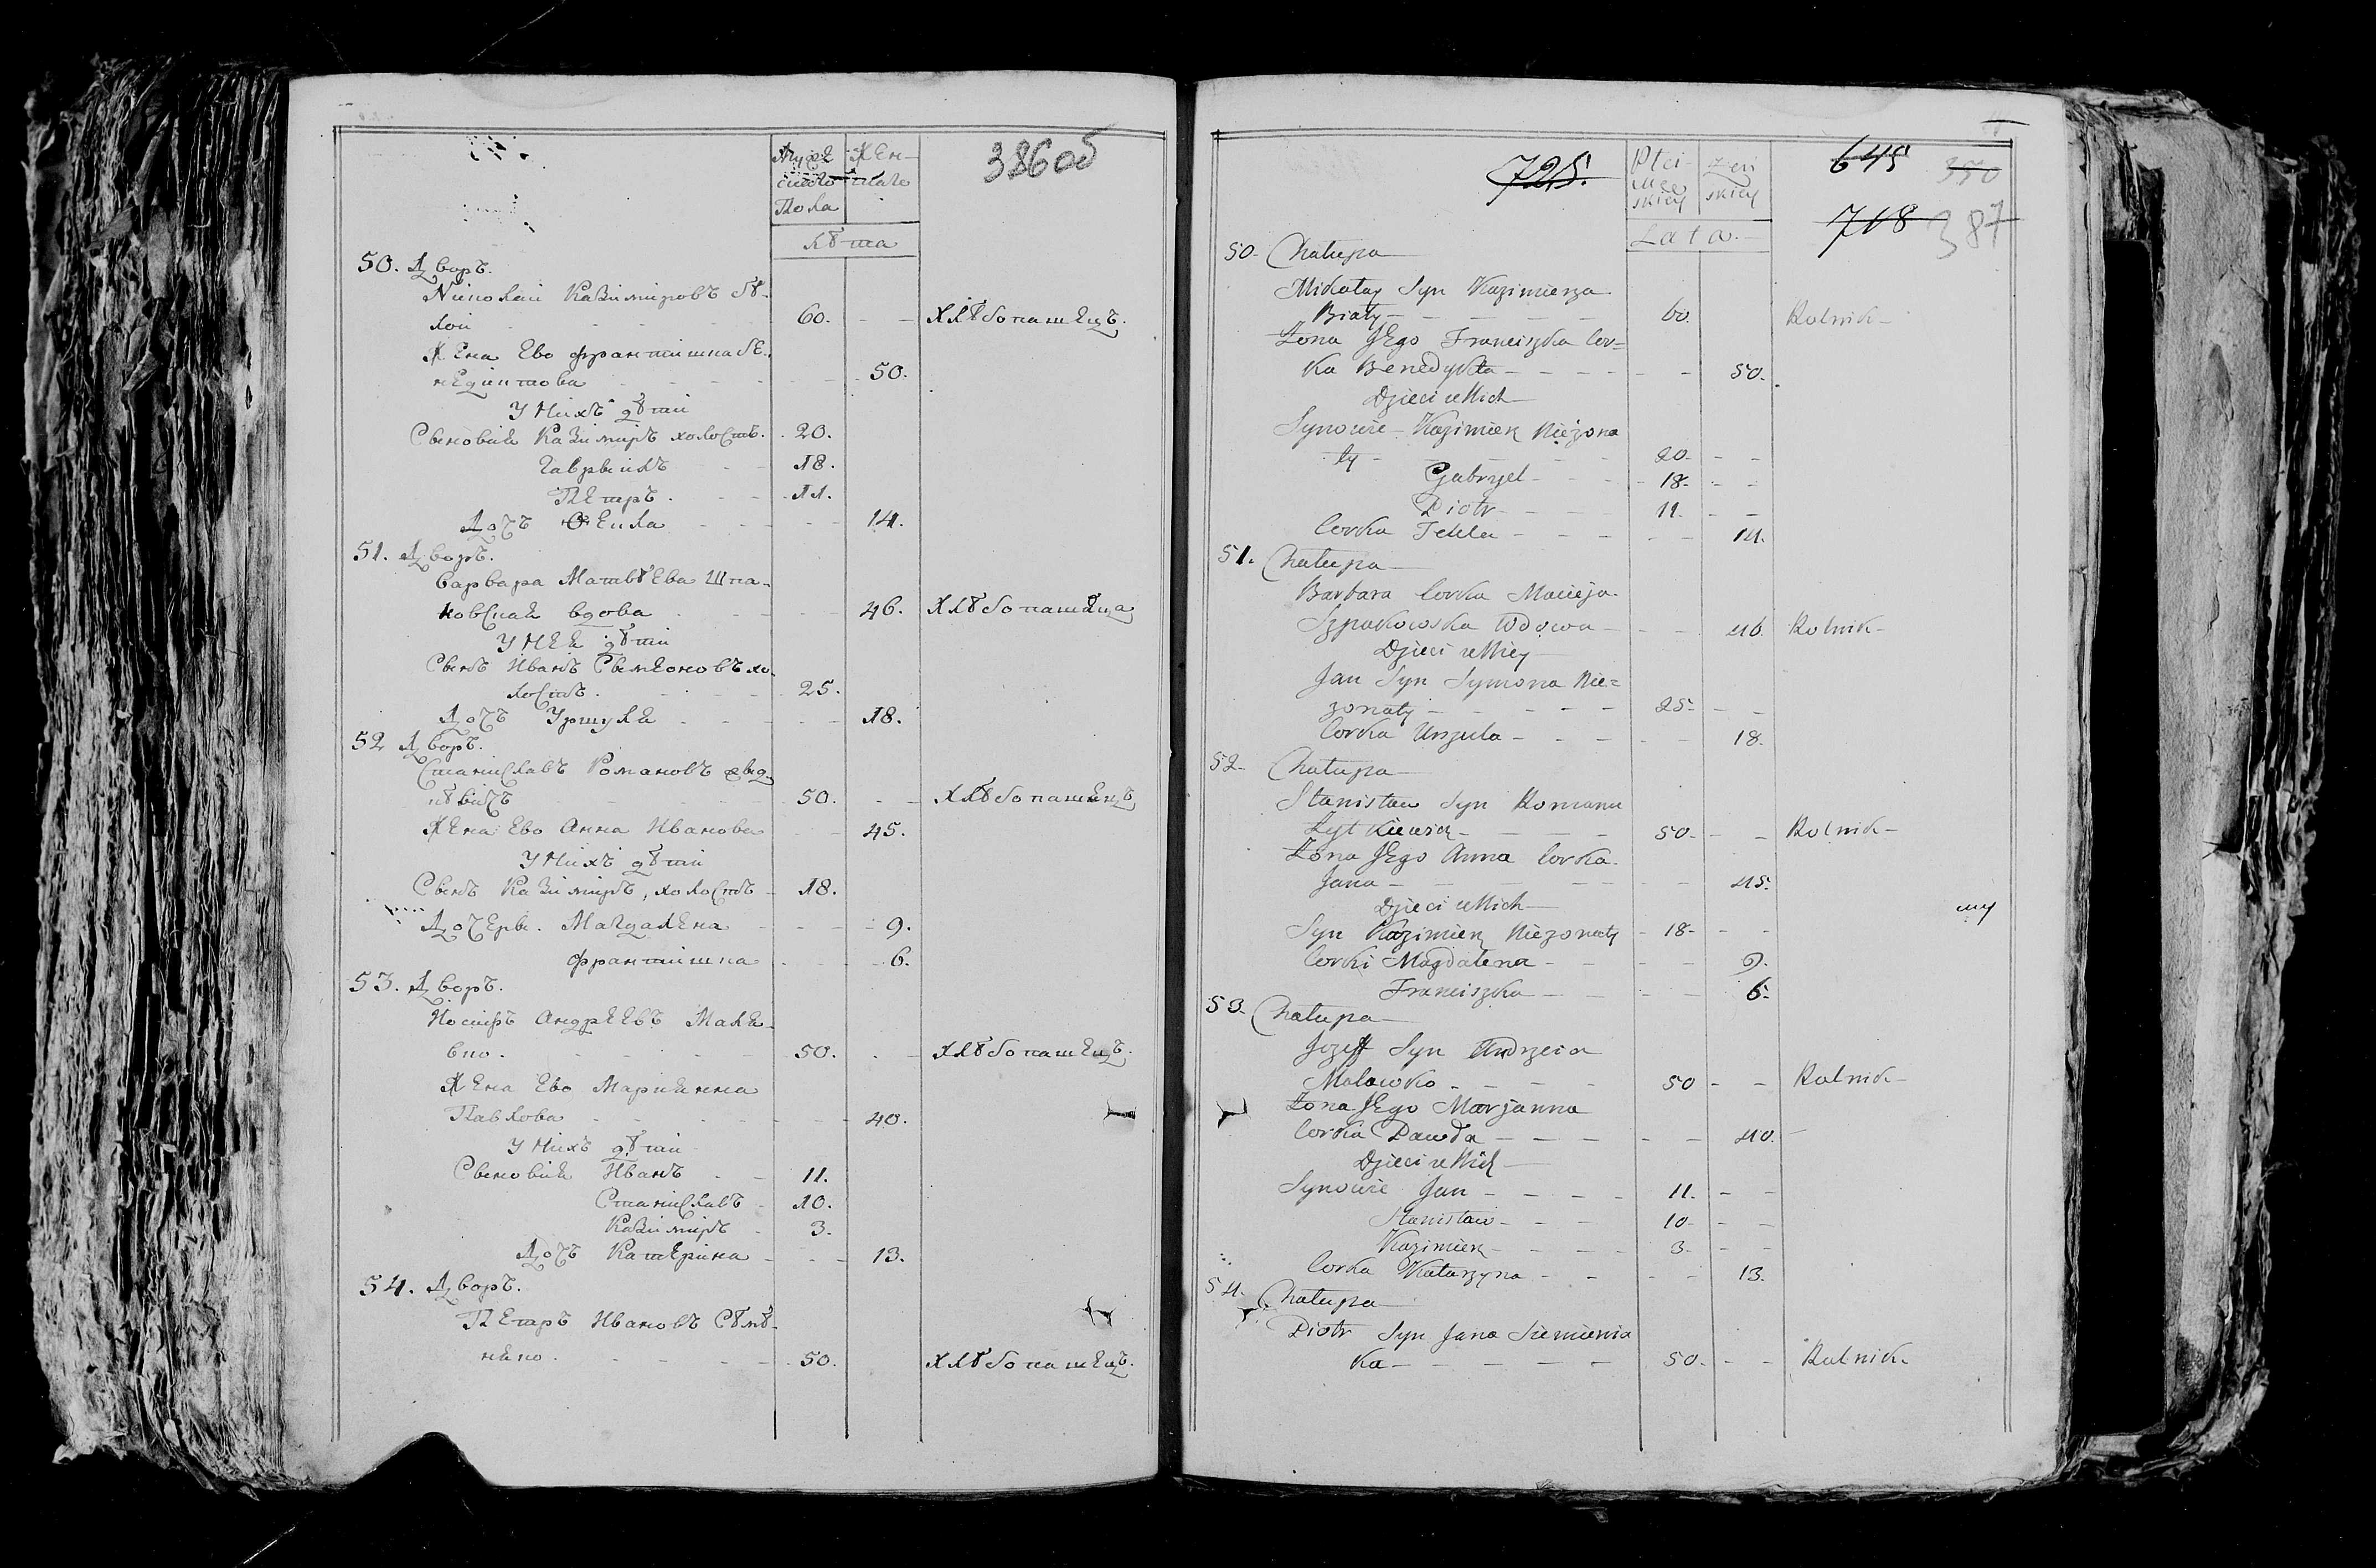 386об
Муже Жен-
ска́го скаго
Пола
лѣта
50. Дворъ.
Николай Казимировъ Бѣ-
лой 60. Хлѣбопашецъ.
Жена Ево Франтишка Бе-
недиктова 50.
У Нихъ дѣти
Сыновия Казимиръ холостъ. 20.
Гаврыилъ 18.
Петръ. 11.
Дочъ Ѳекла 14.
51. Дворъ.
Варвара Матвѣева Шпа-
ковская вдова 46. Хлѣбопашеца
У Нея дѣти
Сынъ Иванъ Сымоновъ хо-
лостъ. 25.
Дочъ Уршуля 18.
52 Дворъ.
Станиславъ Романовъ
50. Хлѣбопашенцъ
Жена Ево Анна Иванова 45.
У Нихъ дѣти
Сынъ Казимиръ, холостъ 18.
Дочеры. Магдалена 9.
Франтишка 6.
53. Дворъ.
Иосифъ Андреевъ Маля-
вко. 50. Хлѣбопашецъ.
Жена Ево Марианна
Павлова 40.
У Нихъ дѣти
Сыновия Иванъ 11.
Станиславъ 10.
Казимиръ 3.
Дочъ Катерина 13.
54. Дворъ.
Петръ Ивановъ Сѣмѣ-
няко. 50. Хлѣбопашецъ.
725. 645 350
718 387
Płci
męz zeń
skiey skiey
Lata.
50. Chałupa
Mikołay Syn Kazimierza
Biały 60. Rolnik
Żona Jego Franciszka Cor=
ka Benedykta 50.
Dzieci u Nich
Synowie Kazimierz Nieżona
ty 20
Gabryel 18.
Piotr 11.
Corka Tekla 14.
51. Chałupa
Barbara Corka Macieja
Szpakowska Wdowa 46. Rolnik
Dzieci u Niey
Jan Syn Symona Nie=
zonaty 25.
Corka Urszula 18.
52. Chałupa
Stanisław Syn Romana
50. Rolnik
Żona Jego Anna Corka
Jana 45.
Dzieci u Nich
Syn Kazimierz Niezonaty 18.
Corki Magdalena 9.
Franciszka 6.
53. Chałupa
Jozeff Syn Andrzeia
Malawko 50 Rolnik
Żona Jego Marjanna
Corka Pawła 40.
Dzieci u Nich
Synowie Jan 11.
Stanisław 10
Kazimierz 3.
Corka Katarzyna 13.
54. Chałupa
Piotr Syn Jana Siemienia
ka 50. Rolnik.